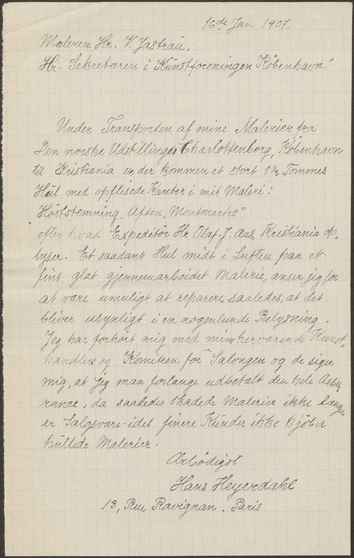 16de Jan 1907.
Maleren Hr. V. Jastrau.
Hr. Sekretæren i Kunstforeningen København
Under Transporten af mine Malerier fra
Den norske Udstilling Charlottenborg, København
til Kristiania er der kommen et stort 1½ Tommes
Hul med opflisede Kanter i mit Maleri:
"Høststemning. Aften, Montmartre"
efter hvad Expeditør Hr. Olaf J. Aas, Kristiania op-
lyser. Et saadant Hul midt i Luften paa et
fint, glat gjennemarbeidet Malerie, anser jeg for
at være umuligt at reparere saaledes, at det
bliver usynligt i en nogenlunde Belysning.
Jeg har forhørt mig med min herværende Kunst
handler og Komiteen for Salongen og de siger
mig, at jeg maa forlange udbetalt den hele Assu
rance, da saaledes skadede Malerier ikke længer
er Salgsvare idet finere Kunder ikke kjøber
hullede Malerier.
Ærbødigst
Hans Heyerdahl
13, Rue Ravignan. Paris